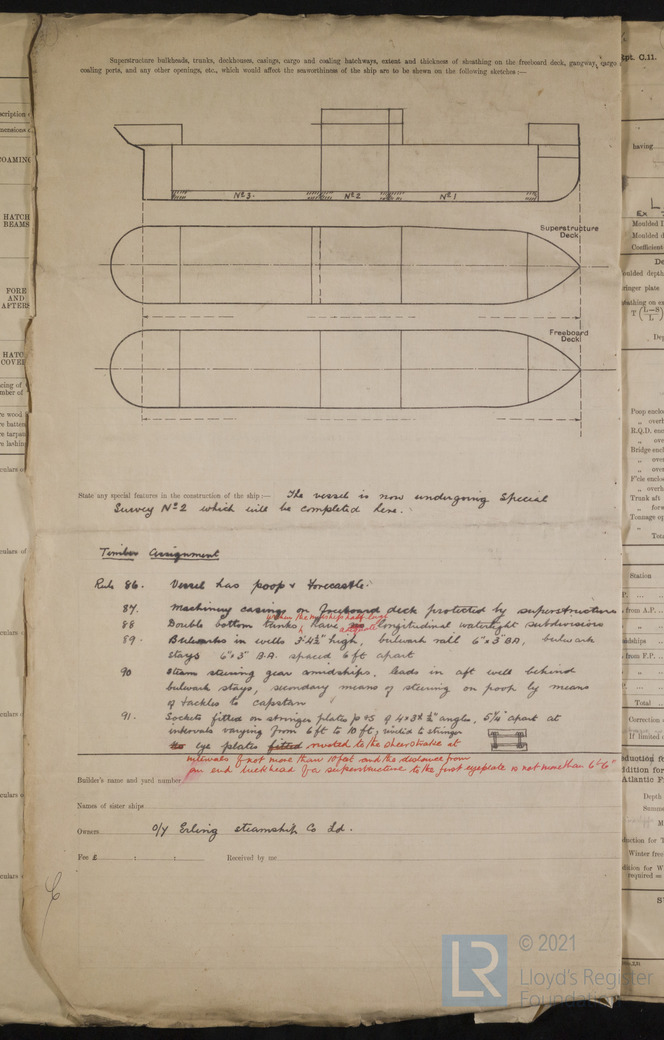 Superstructure bulkheads, trunks, deckhouses, casings, cargo and coaling hatchways, extent and thickness of sheathing on the freeboard deck, gangway, cargo
coaling ports, and any other openings, etc., which would affect the seaworthiness of the ship are to be shewn on the following sketches:—
Nº 3. Nº 2 Nº 1
Superstructure
Deck.
Freeboard
Deck
State any special features in the construction of the ship:— The vessel is now undergoing Special
Survey Nº 2 which will be completed here.
Timber Assignment
Rule 86. Vessel has poop & forecastle.
87. Machinery casings on freeboard deck protected by superstructure
within the midship half length
88 Double bottom tanks have longitudinal watertight subdivisions
89. Bulwarks in wells 3'-4½" high, bulwark rail 6" x 3" BA, bulwark
stays 6" x 3" B.A. spaced 6 ft apart
90 Steam steering gear amidships. leads in aft well behind
bulwark stays, secondary means of steering on poop by means
of tackles to capstan
91. Sockets fitted on stringer plates P & S of 4 x 3 x ½" angles, 5¼" apart at
intervals varying from 6 ft to 10 ft; to stringer
eye plates fitted riveted to the sheerstrake at
intervals of not more than 10 feet and the distance from
an end bulkhead of a superstructure to the first eyeplate is not more than 6'-6"
Builder's name and yard number
Names of sister ships
Owners O/Y Erling Steamship Co Ld.
Fee £ : : Received by me
scription
mensions
OAMING
HATCH
BEAMS
FORE
AND
AFTERS
HATC
COVE
cing of
mber of
re wood
re batten
re tarpau
re lashing
culars o
culars of
culars
culars
culars o
Rpt. C.11.
having
L
Ex
Moulded
Moulded d
Coefficient
De
oulded depth
ringer plate
athing on ex
T (L—S/L)
Dep
Poop enclo
„ overh
R.Q.D. enc
„ ove
Bridge encl
„ over
„ over
F'cle enclo
„ overh
Trunk aft
„ forw
Tonnage op
„
Tota
Station
P.
from A.P.
„
idships
from F.P.
„
P.
Total
Correction
If limited
duction fo
ddition for
Atlantic F
Depth
Summe
M
duction for T
Winter free
dition for W
required =
© 2021
LR
Lloyd's Register
Foundation